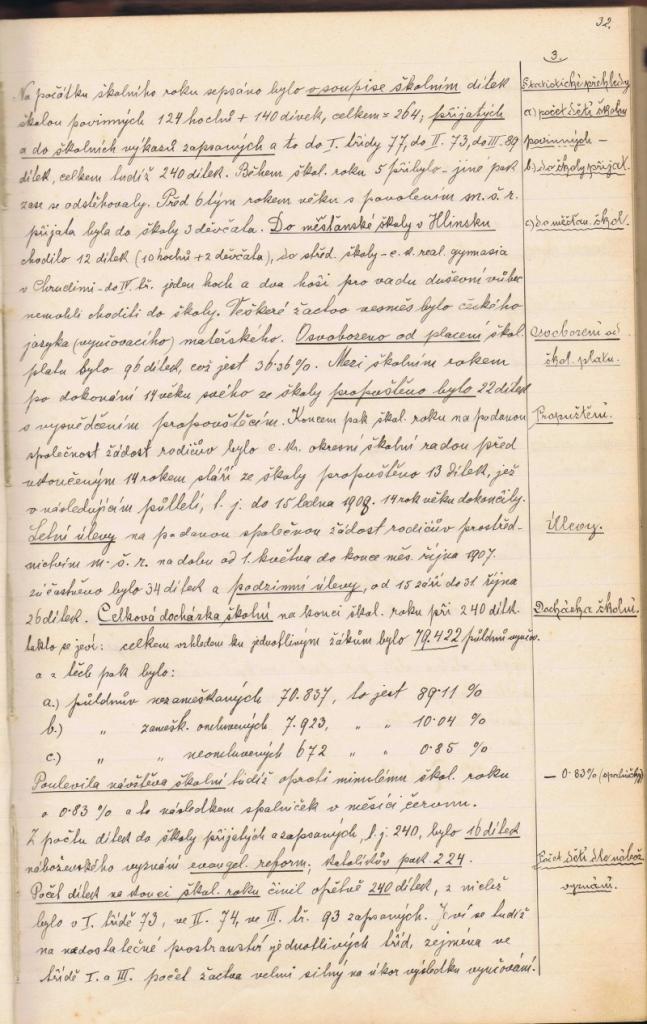 32.
3.
Na počátku školního roku sepsáno bylo v soupise školním dítek
školou povinných 124 hochů + 140 dívek, celkem = 264; přijatých
a do školních výkazů zapsaných a to do I. třídy 77, do II. 73, do III. 89
dítek, celkem tudíž 240 dítek. Během škol. roku 5 přibylo – jiné pak
zase se odstěhovaly. Před 6tým rokem věku s povolením m. š. r.
přijata byla do školy 3 děvčata. Do měšťanské školy v Hlinsku
chodilo 12 dítek (10 hochů + 2 děvčata), do střed. školy – c. k. real. gymnasia
v Chrudimi – do IV. tř. jeden hoch a dva hoši pro vadu duševní vůbec
nemohli choditi do školy. Veškeré žactvo vesměs bylo českého
jazyka (vyučovacího) mateřského. Osvobozeno od placení škol.
platu bylo 96 dítek, což jest 36·36 %. Mezi školním rokem
po dokonání 14 věku svého ze školy propuštěno bylo 22 dítek
s vysvědčením propouštěcím. Koncem pak škol. roku na podanou
společnost žádost rodičův bylo c. kr. okresní školní radou před
ukončeným 14 rokem stáří ze školy propuštěno 13 dítek, jež
v následujícím půlletí, t. j. do 15 ledna 1908. 14 rok věku dokončily.
Letní úlevy na podanou společnou žádost rodičův prostřed-
nictvím m. š. r. na dobu od 1. května do konce měs. října 1907.
zúčastněno bylo 34 dítek a podzimní úlevy, od 15 září do 31 října
26 dítek. Celková docházka školní na konci škol. roku při 240 dítk.
takto se jeví: celkem vzhledem ku jednotlivým žákům bylo 79.422 půldnů vyučov.
a z těch pak bylo:
a.) půldnův nezameškaných 70.837, to jest 89·11 %
b.) " zamešk. omluvených 7.923, " " 10·04 %
c.) " " neomluvených 672 " " 0·85 %
Poulevila návštěva školní tudíž oproti minulému škol. roku
o 0·83 % a to následkem spalniček v měsíci červnu.
Z počtu dítek do školy přijatých a zapsaných, t. j. 240, bylo 16 dítek
náboženského vyznání evangel. reform., katolíkův pak 224.
Počet dítek na konci škol. roku činil opětně 240 dítek, z nichž
bylo v I. třídě 73, ve II. 74, ve III. tř. 93 zapsaných. Jeví se tudíž
na nedostatečné prostranství jednotlivých tříd, zejména ve
třídě I. a III. počet žactva velmi silný na úkor výsledku vyučování.
Statistické přehledy
a) počet dětí školou
povinných –
b.) do školy přijat.
c) do měšťan. škol.
Osvobození od
škol. platu.
Propuštění.
Úlevy.
Docházka školní.
– 0·83 % (spalničky)
Počet dětí dle nábož.
vyznání.